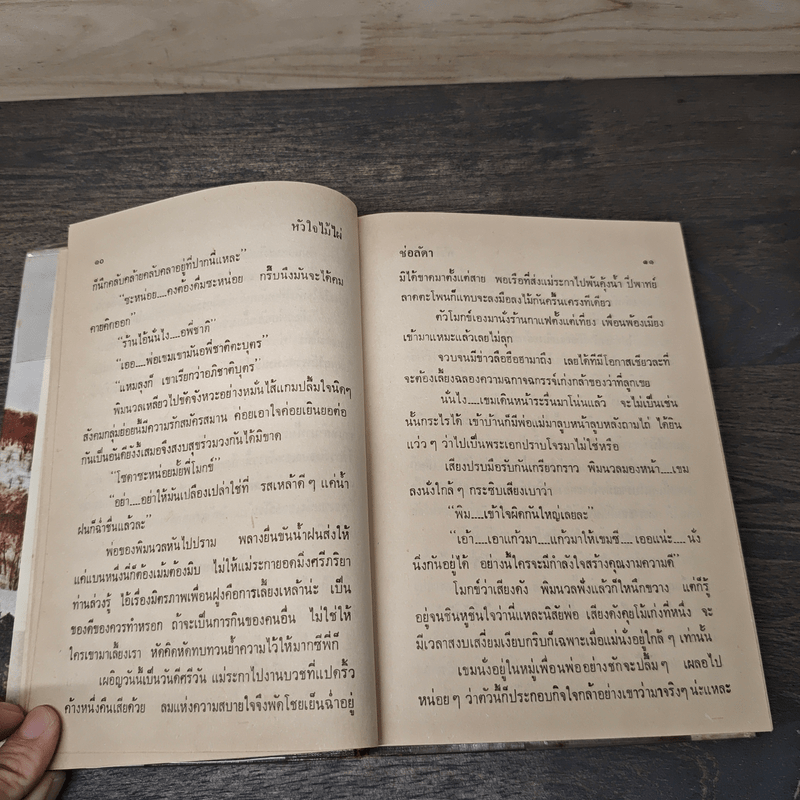 ๑๐
หัวใจไม้ไผ่
ก็นึกคลับคล้ายคลับคลาอยู่ที่ปากนี่แหละ”
“ซะหน่อย....คงต้องดื่มซะหน่อย กริ๊บนึงมันจะได้คม
คายคิกออก”
“ร้านไอ้นั่นไง....อพีชาติ”
“เออ....พ่อเขมเขามันอพีชาติคะบุตร”
“แหมลุงก็ เขาเรียกว่าอภิชาติบุตร”
พิมนวลเหลียวไปขัดจังหวะอย่างหมั่นไส้แกมปลื้มใจนิดๆ
สังคมกลุ่มย่อยนี้มีความรักสมัครสมาน ค่อยเอาใจค่อยเยินยอต่อ
กันเป็นอันดียังงี้เสมอจึงสงบสุขร่วมวงกันได้มิขาด
“โซดาซะหน่อยมั้ยพี่โมกข์”
“อย่า....อย่าให้มันเปลืองเปล่าใช่ที่ รสเหล้าดีๆ แค่น้ำ
ฝนก็ฉ่ำชื่นแล้วละ”
พ่อของพิมนวลหันไปปราม พลางยื่นขันน้ำฝนส่งให้
แค่แบนหนึ่งนี่ก็ต้องเม้มต้องมิบ ไม่ให้แม่ระกายอดมิ่งศรีภริยา
ท่านล่วงรู้ ไอ้เรื่องมิตรภาพเพื่อนฝูงคือการเลี้ยงเหล้าน่ะ เป็น
ของดีของควรทำหรอก ถ้าจะเป็นการกินของคนอื่น ไม่ใช่ให้
ใครเขามาเลี้ยงเรา หัดคิดหัดทบทวนย้ำความไว้ให้มากซีพี่ก็
เผอิญวันนี้เป็นวันดีศรีวัน แม่ระกาไปงานบวชที่แปดริ้ว
ค้างหนึ่งคืนเสียด้วย ลมแห่งความสบายใจจึงพัดโชยเย็นฉ่ำอยู่
ช่อลัดา
๑๑
มิได้ขาดมาตั้งแต่สาย พอเรือที่ส่งแม่ระกาไปพ้นคุ้งน้ำ ปี่พาทย์
ลาดตะโพนก็แทบจะลงมือลงไม้กันครื้นเครงทีเดียว
ตัวโมกข์เองมานั่งร้านกาแฟตั้งแต่เที่ยง เพื่อนพ้องเมียง
เข้ามาแหมะแล้วเลยไม่ลุก
จวบจนมีข่าวลือฮือฮามาถึง เลยได้ทีมีโอกาสเชียวละที่
จะต้องเลี้ยงฉลองความฉกาจฉกรรจ์เก่งกล้าของว่าที่ลูกเขย
นั่นไง....เขมเดินหน้าระรื่นมาโน่นแล้ว จะไม่เป็นเช่น
นั้นกระไรได้ เข้าบ้านก็มีพ่อแม่มาลูบหน้าลูบหลังถามไถ่ ได้ยิน
แว่วๆ ว่าไปเป็นพระเอกปราบโจรมาไม่ใช่หรือ
เสียงปรบมือรับกันเกรียวกราว พิมนวลมองหน้า....เขม
ลงนั่งใกล้ๆ กระซิบเสียงเบาว่า
“พิม....เข้าใจผิดกันใหญ่เลยละ”
“เอ้า....เอาแก้วมา....แก้วมาให้เขมซี....เออแน่ะ....นั่ง
นิ่งกันอยู่ได้ อย่างนี้ใครจะมีกำลังใจสร้างคุณงามความดี”
โมกข์ว่าเสียงดัง พิมนวลฟังแล้วก็ไหนึกขวาง แต่ก็รู้
อยู่จนชินหูชินใจว่านี่แหละนิสัยพ่อ เสียงดังคุยโม้เก่งที่หนึ่ง จะ
มีเวลาสงบเสงี่ยมเงียบกริบก็เฉพาะเมื่อแม่นั่งอยู่ใกล้ๆ เท่านั้น
เขมนั่งอยู่ในหมู่เพื่อนพ่ออย่างชักจะปลื้มๆ เผลอไป
หน่อยๆ ว่าตัวนี้ก็ประกอบกิจใจกล้าอย่างเขาว่ามาจริงๆ น่ะแหละ